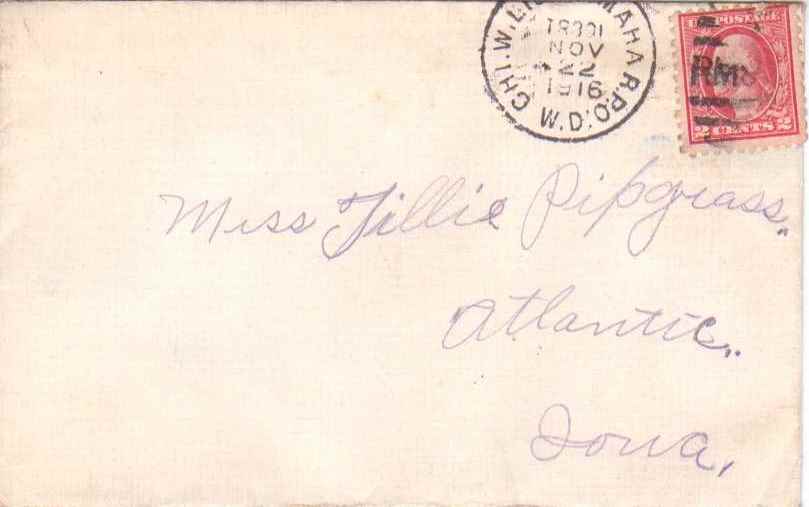 CHI. W. LI OMAHA R.P.O. W.D.
TR391
NOV
22
1916
U.S. POSTAGE
RMS
2 CENTS 2
Miss Tillie Pipgrass.
Atlantic,
Iowa,